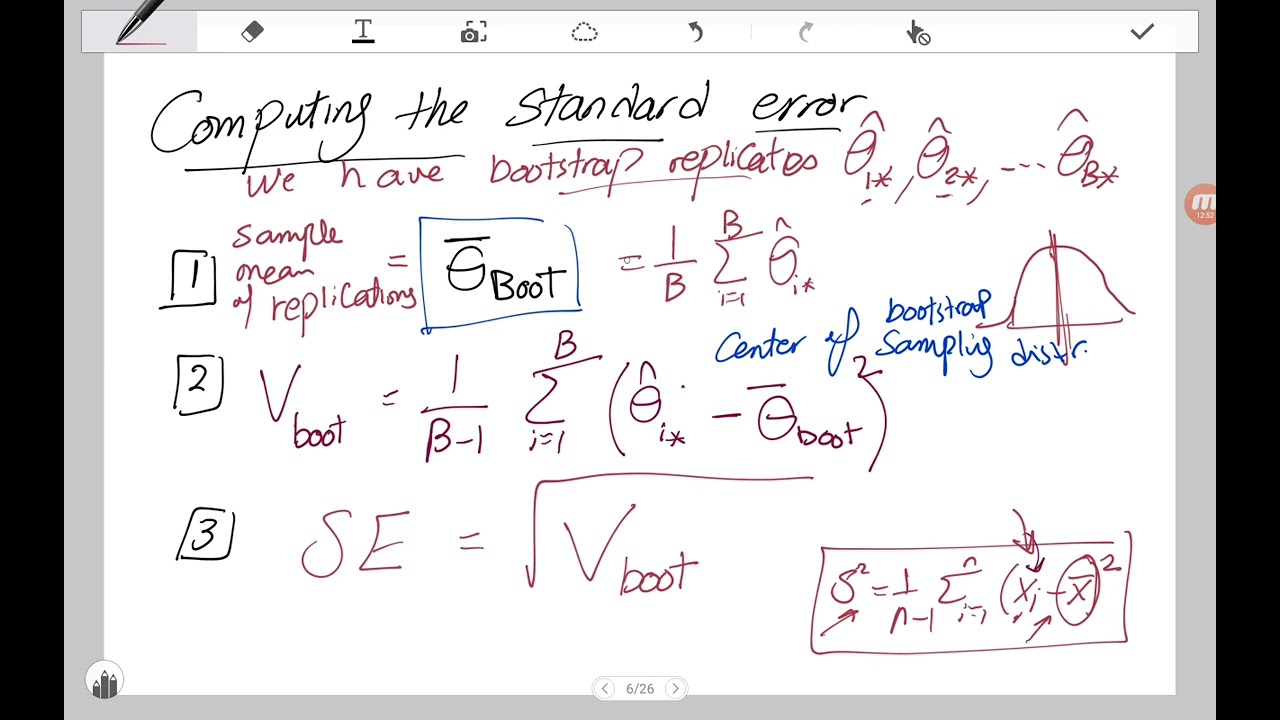 T
Computing the standard error
We have bootstrap replicates θ̂₁*, θ̂₂*, ... θ̂_B*
1 sample mean of replications = θ̄_Boot = 1/B Σ_{i=1}^{B} θ̂_i*
Center of bootstrap sampling distr.
2 V_boot = 1/(B-1) Σ_{i=1}^{B} (θ̂_i* - θ̄_boot)²
3 SE = √V_boot
S² = 1/(n-1) Σ_{i=1}^{n} (x_i - x̄)²
6/26
M
12:53